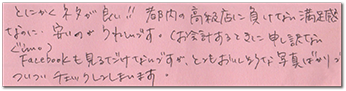 とにかくネタが良い!! 都内の高級店に負けない満足感
なのに、安いのがうれしいです。(お会計するときに申し訳ない
ぐらい。)
Facebookも見るだけなんですが、とてもおいしそうな写真ばかりで
ついついチェックしてしまいます。